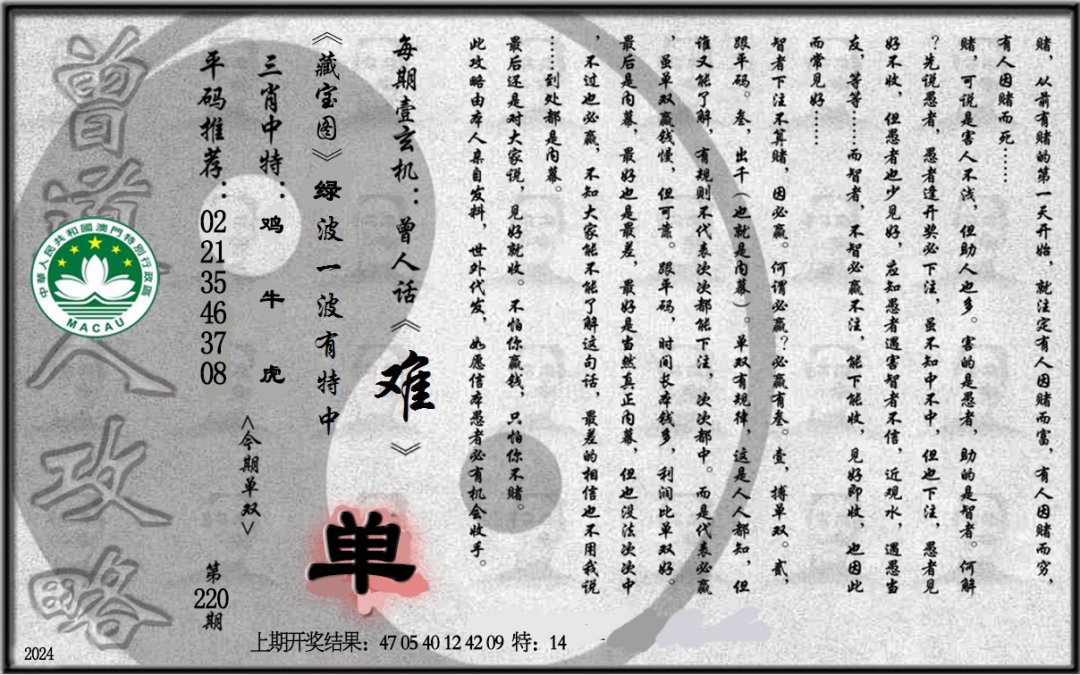 赌，从前有赌的第一天开始，就注定有人因赌而富，有人因赌而穷，
有人因赌而死……
赌，可说是害人不浅，但助人也多。害的是愚者，助的是智者。何解
？先说愚者，愚者逢开奖必下注，虽不知中不中，但也下注，愚者见
好不收，但愚者也少见好，应知愚者遇害智者不信，近观水，遇愚当
友，等等……而智者，不智必赢不注，能下能收，见好即收，也因此
而常见好……
智者下注不算赌，因必赢。何谓必赢？必赢有叁。壹，搏单双。贰，
跟平码。叁，出千（也就是内幕）。单双有规律，这是人人都知，但
谁又能了解，有规则不代表次次都能下注，次次都中。而是代表必赢
，虽单双赢钱慢，但可靠。跟平码，时间长本钱多，利润比单双好。
最后是内幕，最好也是最差，最好是当然真正内幕，但也没法次次中
，不过也必赢，不知大家能不能了解这句话，最差的相信也不用我说
……到处都是内幕。
最后还是对大家说，见好就收。不怕你赢钱，只怕你不赌。
此攻略由本人亲自发料，世外代发，如愿信本愚者必有机会收手。
每期壹玄机：曾人话《难》
《藏宝图》绿波一波有特中
单
三肖中特：鸡 牛 虎
<今期单双>
平码推荐：02 21 35 46 37 08
第220期
曾道人攻略
中華人民共和國澳門特別行政區
MACAU
上期开奖结果：47 05 40 12 42 09 特：14
2024